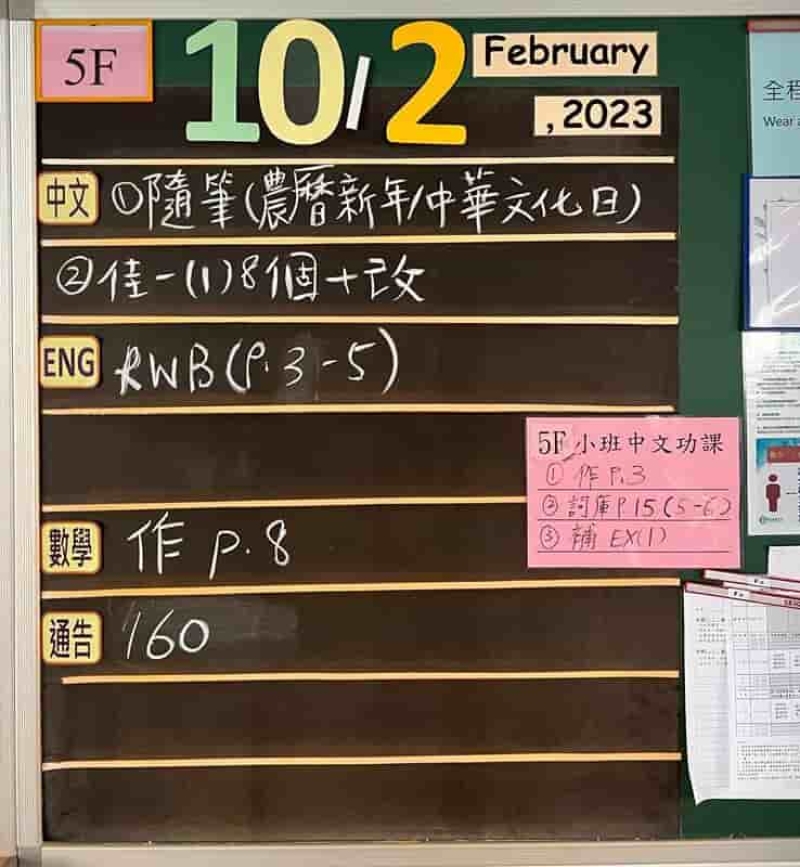 5F
10/2
February
,2023
中文 ①隨筆(農曆新年/中華文化日)
②佳-(1)8個+改
ENG RWB(P.3-5)
5F 小班中文功課
①作 P.3
②詞庫 P15(5-6)
③補 EX(1)
數學 作 p.8
通告 160
全程
Wear a